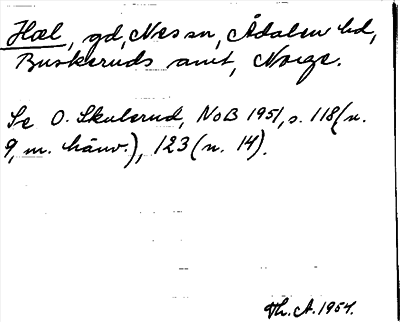 Hæl, gd, Nes sn, Ådalen hd,
Buskeruds amt, Norge.
Se O. Skulerud, NoB 1951, s. 118 (n.
9, m. hänv.), 123 (n. 14).
Th. A. 1954.